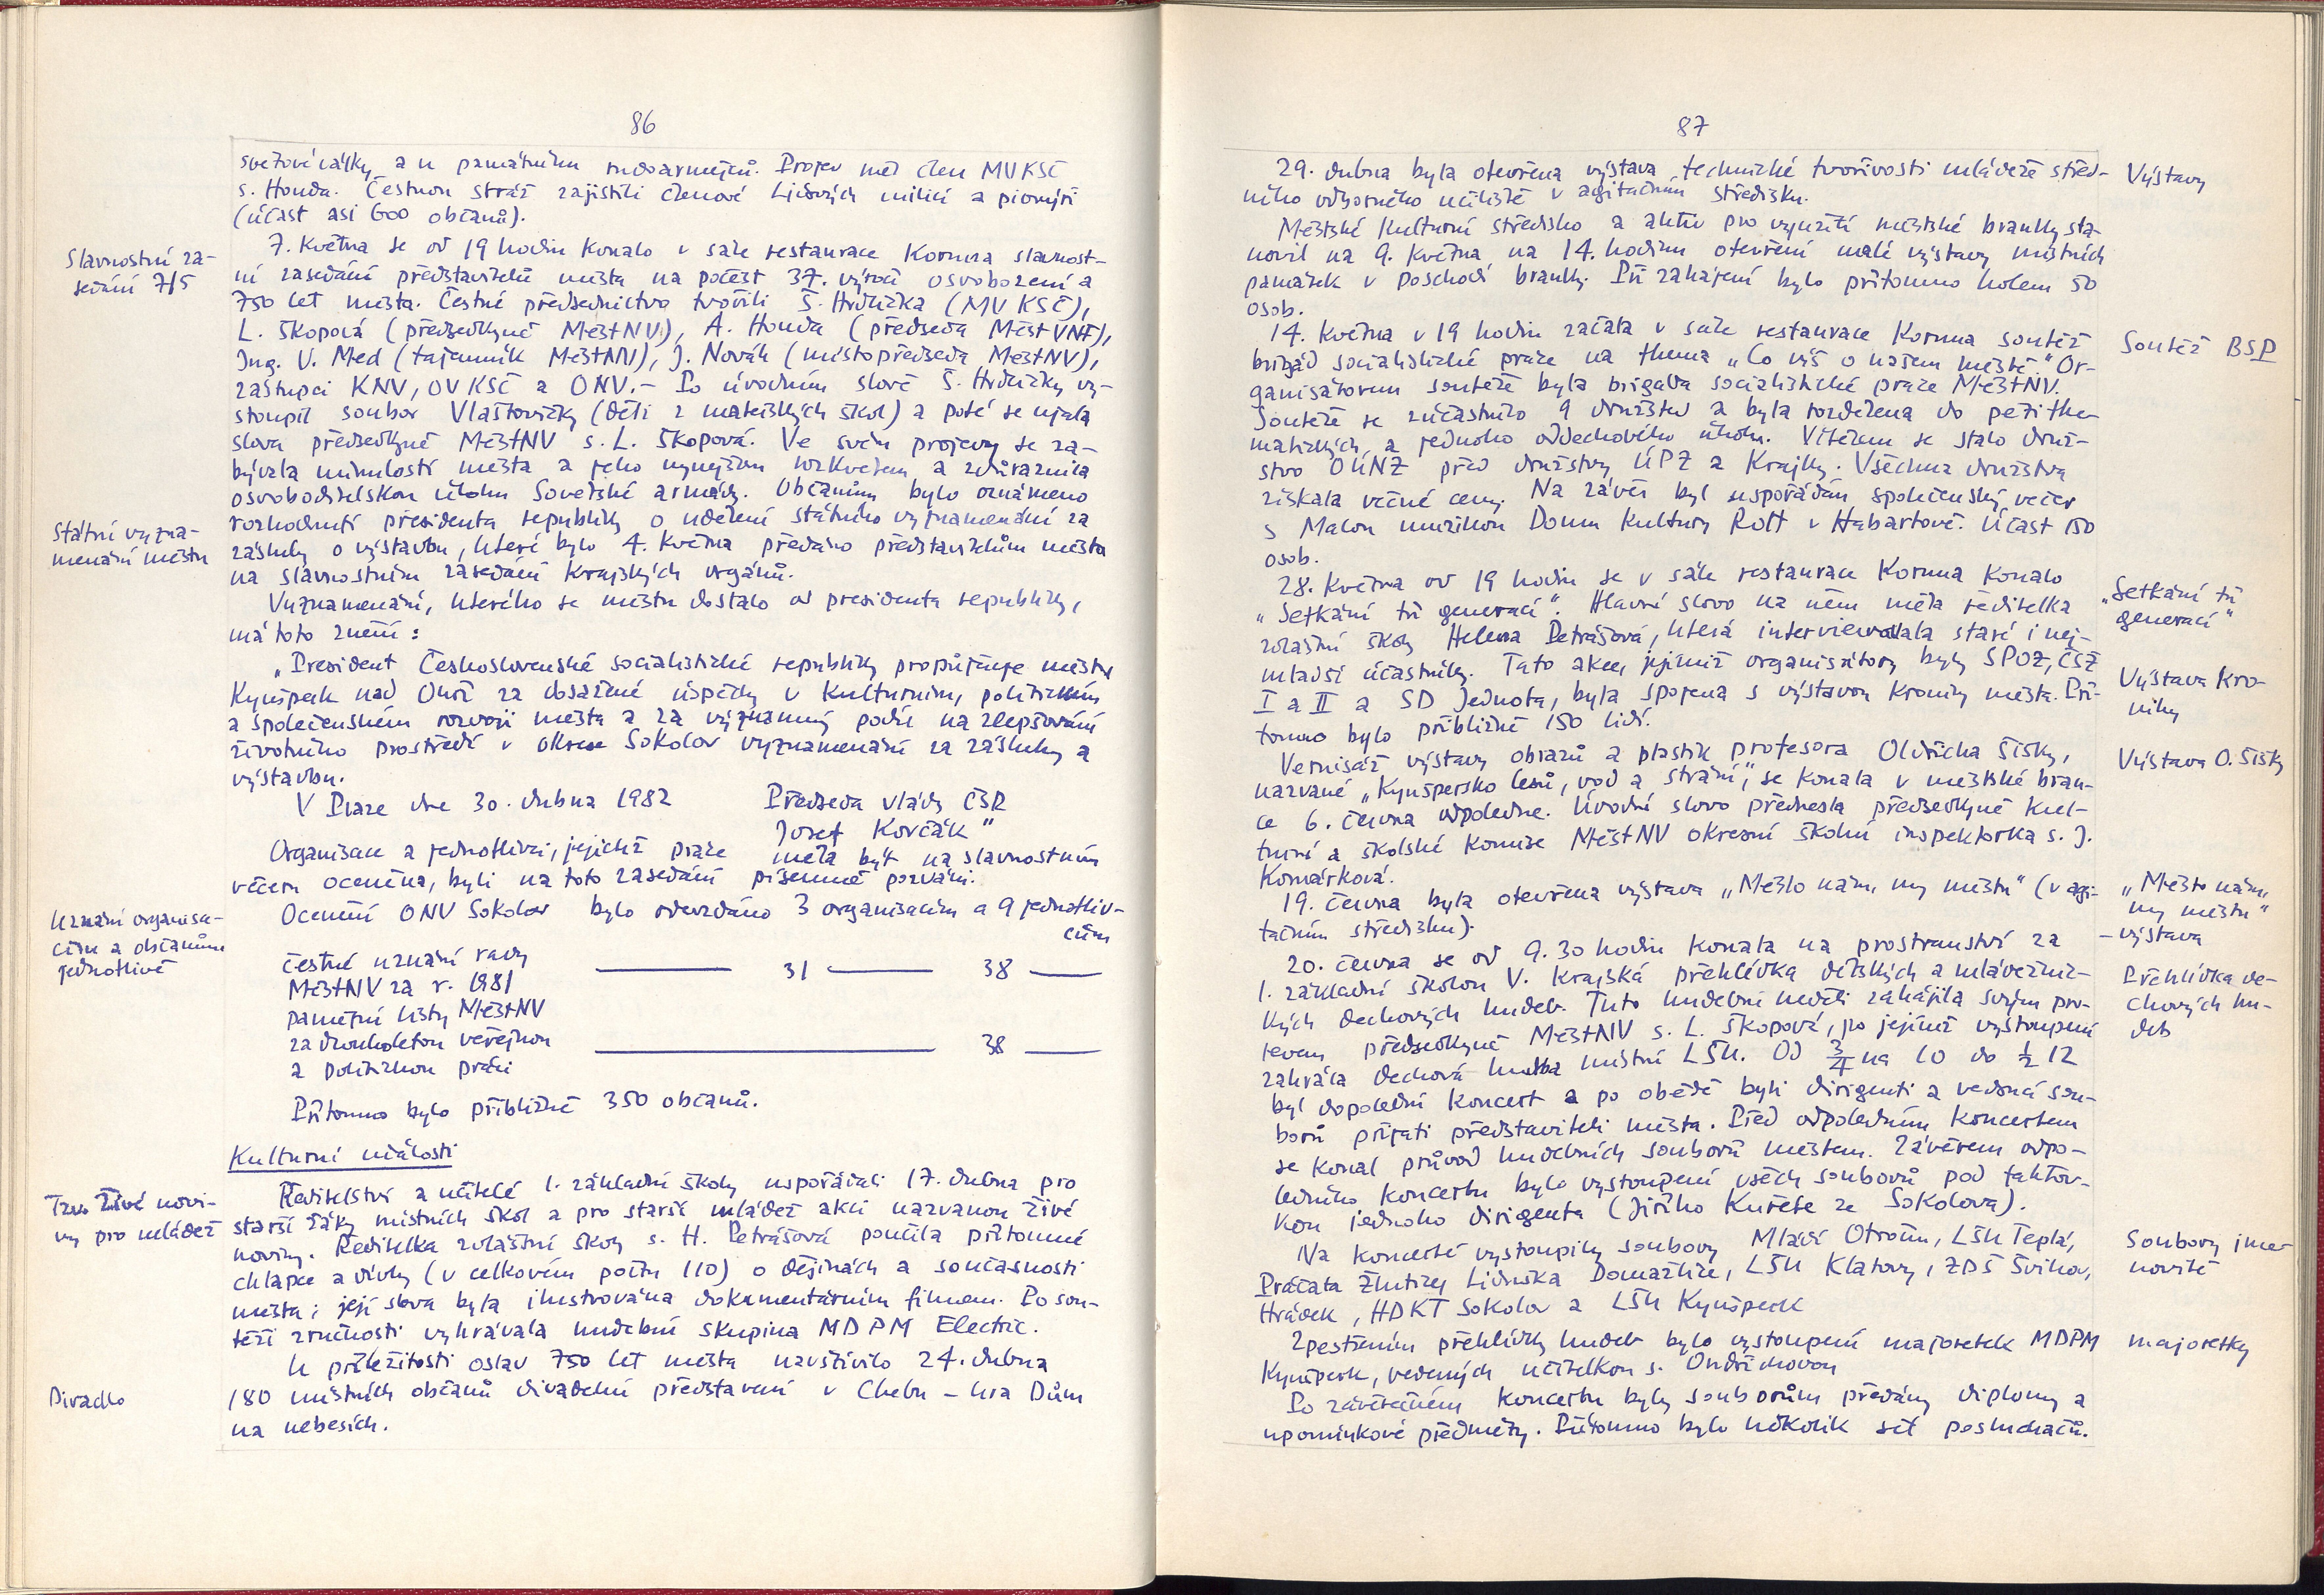 86
světové války, a u památníku rudoarmějců. Projev měl člen MVKSČ
s. Honda. Čestnou stráž zajistili členové Lidových milicí a pionýři
(účast asi 600 občanů).
Slavnostní za-
sedání 7/5
7. května se od 19 hodin konalo v sále restaurace Koruna slavnost-
ní zasedání představitelů města na počest 37. výročí osvobození a
750 let města. Čestné předsednictvo tvořili Š. Hrdlička (MV KSČ),
L. Škopová (předsedkyně MěstNV), A. Honda (předseda MěstVNF),
Ing. V. Med (tajemník MěstNV), J. Novák (místopředseda MěstNV),
zástupci KNV, OV KSČ a ONV. – Po úvodním slově Š. Hrdličky vy-
stoupil soubor Vlaštovičky (děti z mateřských škol) a poté se ujala
slova předsedkyně MěstNV s. L. Škopová. Ve svém projevu se za-
bývala minulostí města a jeho nynějším rozkvětem a zdůraznila
osvoboditelskou úlohu Sovětské armády. Občanům bylo oznámeno
Státní vyzna-
menání městu
rozhodnutí presidenta republiky o udělení státního vyznamenání za
zásluhy o výstavbu, které bylo 4. května předáno představitelům města
na slavnostním zasedání krajských orgánů.
Vyznamenání, kterého se městu dostalo od presidenta republiky,
má toto znění:
„President Československé socialistické republiky propůjčuje městu
Kynšperk nad Ohří za dosažené úspěchy v kulturním, politickém
a společenském rozvoji města a za významný podíl na zlepšování
životního prostředí v okrese Sokolov vyznamenání za zásluhy a
výstavbu.
V Praze dne 30. dubna 1982 Předseda vlády ČSR
Josef Korčák"
Organisace a jednotlivci, jejichž práce měla být na slavnostním
večeru oceněna, byli na toto zasedání písemně pozváni.
Uznání organisa-
cím a občanům
jednotlivě
Ocenění ONV Sokolov bylo odevzdáno 3 organisacím a 9 jednotliv-
cům
čestné uznání rady
MěstNV za r. 1981 — 31 — 38 —
pamětní listy MěstNV
za dlouholetou veřejnou — 38 —
a politickou práci
Přítomno bylo přibližně 350 občanů.
Kulturní události
Tzv. Živé novi-
ny pro mládež
Ředitelství a učitelé 1. základní školy uspořádali 17. dubna pro
starší žáky místních škol a pro starší mládež akci nazvanou Živé
noviny. Ředitelka zvláštní školy s. H. Petrášová poučila přítomné
chlapce a dívky (v celkovém počtu 110) o dějinách a současnosti
města; její slova byla ilustrována dokumentárním filmem. Po sou-
těži zručnosti vyhrávala hudební skupina MDPM Electric.
U příležitosti oslav 750 let města navštívilo 24. dubna
Divadlo
180 místních občanů divadelní představení v Chebu – hra Dům
na nebesích.
87
29. dubna byla otevřena výstava technické tvořivosti mládeže střed-
ního odborného učiliště v agitačním středisku.
Výstavy
Městské kulturní středisko a aktiv pro využití městské branky sta-
novil na 9. května na 14. hodinu otevření malé výstavy místních
památek v poschodí branky. Při zahájení bylo přítomno kolem 50
osob.
14. května v 19 hodin začala v sále restaurace Koruna soutěž
Soutěž BSP
brigád socialistické práce na thema „Co víš o našem městě." Or-
ganisátorem soutěže byla brigáda socialistické práce MěstNV.
Soutěže se zúčastnilo 9 družstev a byla rozdělena do pěti te-
matických a jednoho oddechového úkolu. Vítězem se stalo druž-
stvo OÚNZ před družstvy ÚPZ a Krajky. Všechna družstva
získala věcné ceny. Na závěr byl uspořádán společenský večer
s Malou muzikou Domu kultury ROH v Habartově. Účast 150
osob.
28. května od 19 hodin se v sále restaurace Koruna konalo
„Setkání tří
generací"
„Setkání tří generací". Hlavní slovo na něm měla ředitelka
zvláštní školy Helena Petrášová, která interviewovala staré i nej-
mladší účastníky. Tato akce, jejímiž organisátory byly SPOZ, ČSŽ
Výstava kro-
niky
I a II a SD Jednota, byla spojena s výstavou kroniky města. Pří-
tomno bylo přibližně 150 lidí.
Vernisáž výstavy obrazů a plastik profesora Oldřicha Šišky,
Výstava O. Šišky
nazvané „Kynšpersko lesů, vod a strání", se konala v městské bran-
ce 6. června odpoledne. Úvodní slovo přednesla předsedkyně kul-
turní a školské komise MěstNV okresní školní inspektorka s. J.
Komárková.
19. června byla otevřena výstava „Město nám, my městu" (v agi-
tačním středisku).
„Město nám,
my městu"
– výstava
20. června se od 9.30 hodin konala na prostranství za
1. základní školou V. krajská přehlídka dětských a mládežnic-
Přehlídka de-
chových hu-
deb
kých dechových hudeb. Tuto hudební neděli zahájila svým pro-
jevem předsedkyně MěstNV s. L. Škopová, po jejímž vystoupení
zahrála dechová hudba místní LŠU. Od 3/4 na 10 do 1/2 12
byl dopolední koncert a po obědě byli dirigenti a vedoucí sou-
borů přijati představiteli města. Před odpoledním koncertem
se konal průvod hudebních souborů městem. Závěrem odpo-
ledního koncertu bylo vystoupení všech souborů pod taktov-
kou jednoho dirigenta (Jiřího Kuřete ze Sokolova).
Na koncertě vystoupily soubory Mladí Otročín, LŠU Teplá,
Soubory jme-
novitě
Práčata Žlutice, Lidnuška Domažlice, LŠU Klatovy, ZDŠ Švihov,
Hrádek, HDKT Sokolov a LŠU Kynšperk
Zpestřením přehlídky hudeb bylo vystoupení majoretek MDPM
majoretky
Kynšperk, vedených učitelkou s. Ondříchovou
Po závěrečném koncertu byly souborům předány diplomy a
upomínkové předměty. Přítomno bylo několik set posluchačů.